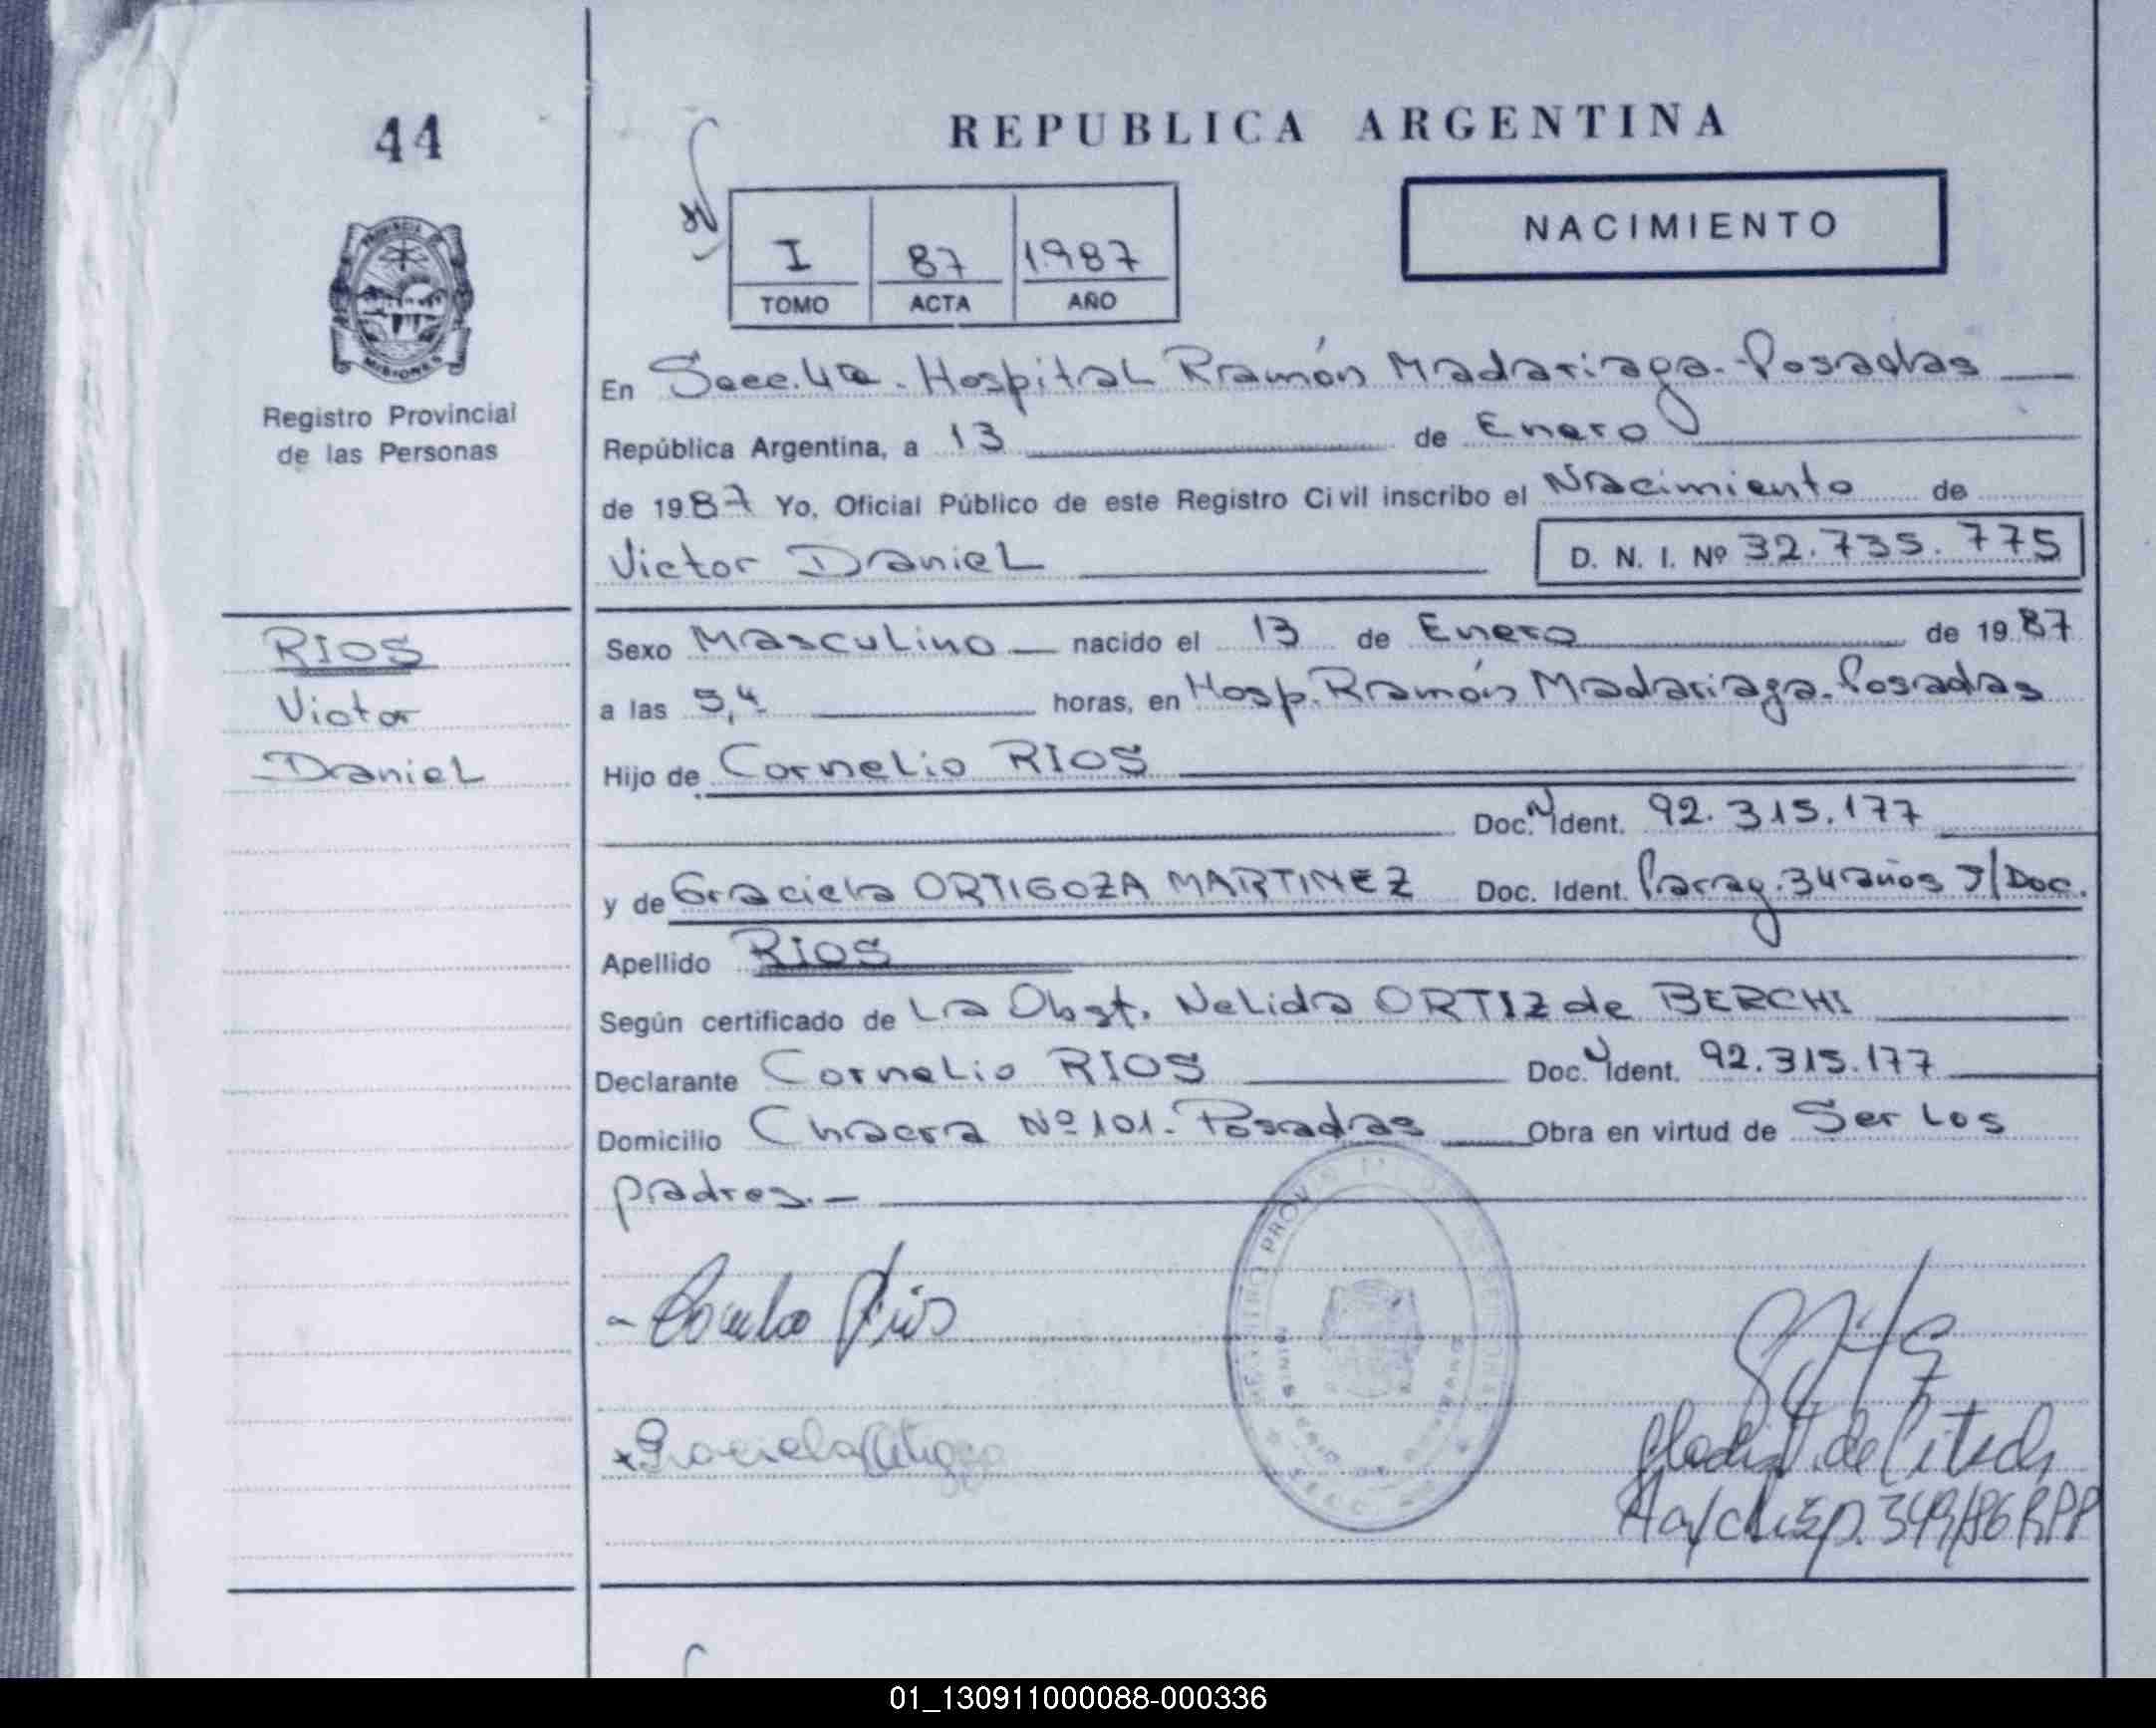 44
REPUBLICA ARGENTINA
NACIMIENTO
I 87 1987
TOMO ACTA AÑO
PROVINCIA DE
MISIONES
Registro Provincial
de las Personas
En Secc. 4ta. Hospital Ramón Madariaga. Posadas
República Argentina, a 13 de Enero
de 1987 Yo, Oficial Público de este Registro Civil inscribo el Nacimiento de
Victor Daniel D. N. I. Nº 32.735.775
RIOS
Victor
Daniel
Sexo Masculino nacido el 13 de Enero de 1987
a las 5,4 horas, en Hosp. Ramón Madariaga. Posadas
Hijo de Cornelio RIOS
Doc. Ident. 92.315.177
y de Graciela ORTIGOZA MARTINEZ Doc. Ident. Parag. 34 años S/Doc.
Apellido RIOS
Según certificado de La Obst. Nelida ORTIZ de BERCHI
Declarante Cornelio RIOS Doc. Ident. 92.315.177
Domicilio Chacra Nº 101. Posadas Obra en virtud de Ser Los
padres.-
Rios
Graciela Ortigoza
de
Disp. 349/86 RPP
01_130911000088-000336